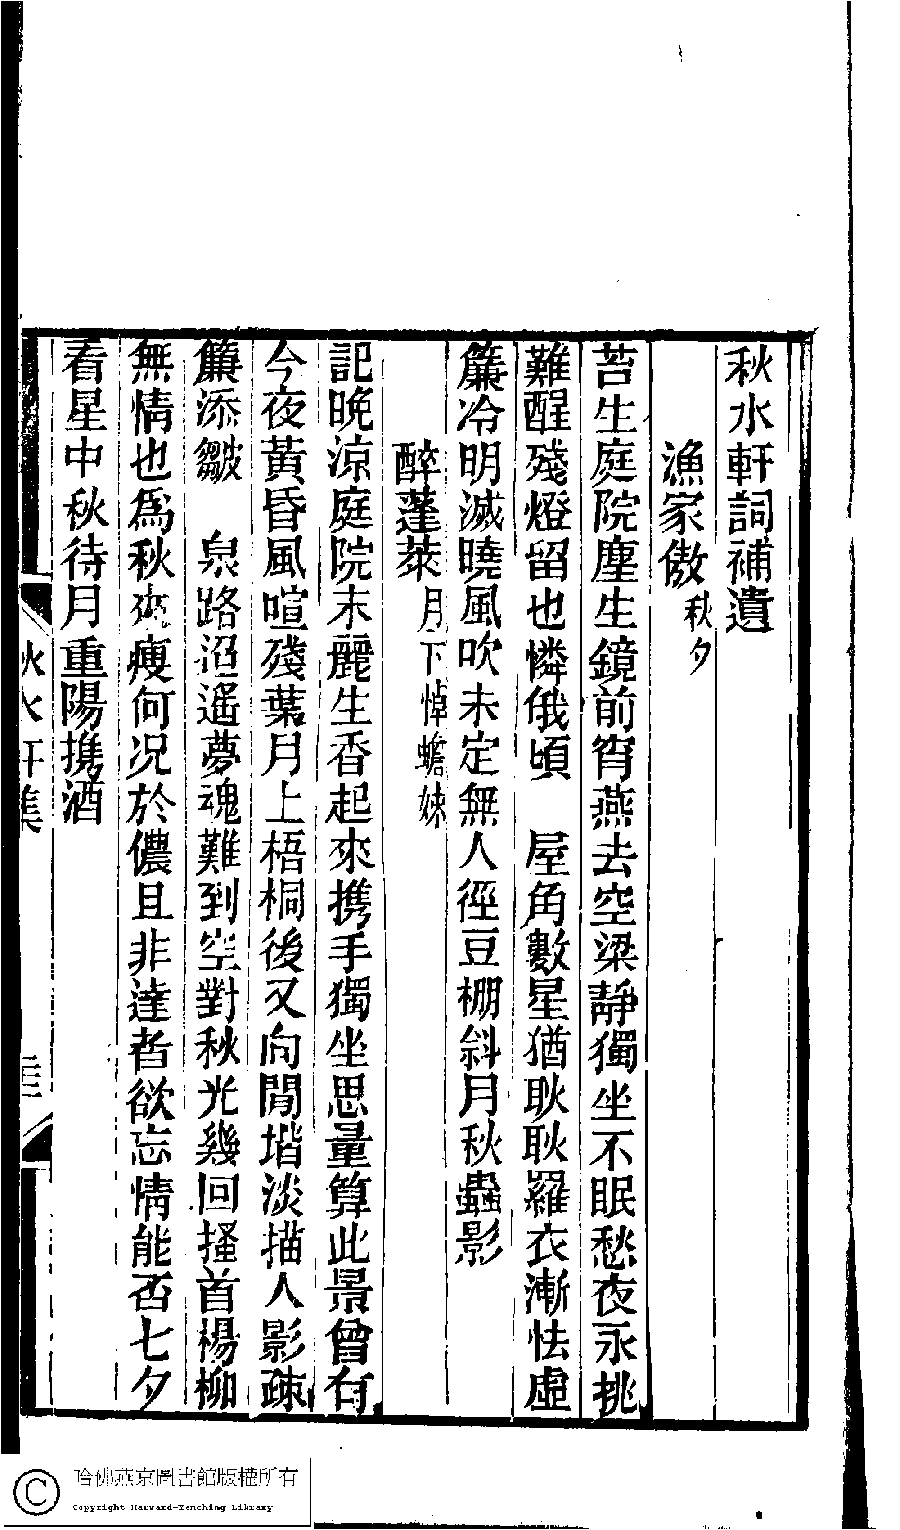 秋水軒詞補遺
漁家傲 秋夕
苔生庭院塵生鏡前宵燕去空梁靜獨坐不眠愁夜永挑
難醒殘燈留也憐俄頃　屋角數星猶耿耿羅衣漸怯虛
簾冷明滅曉風吹未定無人徑豆棚斜月秋蟲影
醉蓬萊 月下悼蟾妹
記晚涼庭院末麗生香起來携手獨坐思量算此景曾有
今夜黃昏風喧殘葉月上梧桐後又向閒堦淡描人影疎
簾添皺　泉路迢遙夢魂難到空對秋光幾回搔首楊柳
無情也爲秋來瘦何况於儂且非達者欲忘情能否七夕
看星中秋待月重陽携酒
秋水軒集
哈佛燕京圖書館版權所有
Copyright Harvard-Yenching Library